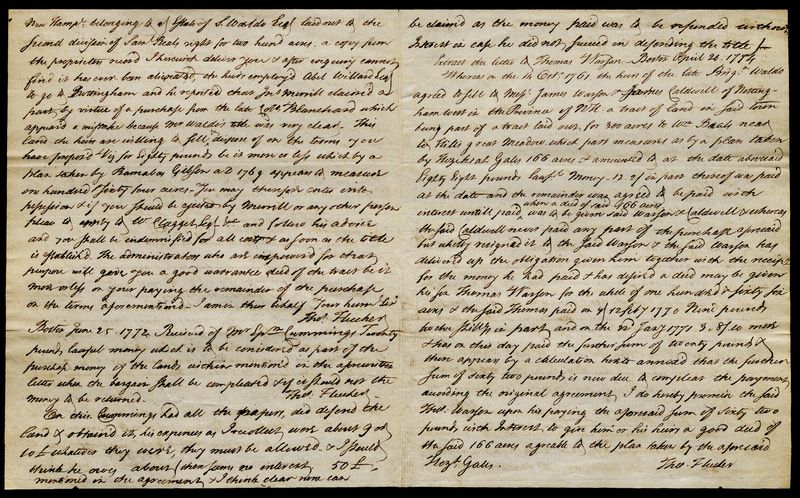 New Hampr. belonging to ye Estate of S. Waldo Esqr laid out to the
second division of Saml Beals right for two hund acres. a copy from
the proprietors record I herewith deliver you & after inquiry cannot
find it has ever been alienated, the heirs employed Abel Willard Esq
to go to Nottingham and he reported that Jno Merrill claimed a
part, by virtue of a purchase from the late Colo Blanchard which
appeard a mistake because Mr Waldo's title was very clear. This
land the heirs are willing to sell & dispose of on the terms you
have proposd Viz for Eighty pounds be it more or less which by a
plan taken by Barnabas Gibson AD 1769 appears to measure
one hundred sixty four acres. You may therefore enter into
possession & if you should be ejected by Merrill or any other person
please to apply to Wm Clagget Esqr and follow his advice
and you shall be indemnified for all cost & as soon as the title
is establishd. The administrators who are impowered for that
purpose will give you a good warrantee deed of the tract be it
more or less on your paying the remainder of the purchase
on the terms aforementiond. I am in their behalf Your hum Sert
Thos Flucker
Boston June 25. 1772. Received of Mr Cummings Twenty
pounds lawful money which is to be considered as part of the
purchase money of the lands within mentioned in the aforewritten
letter when the bargain shall be compleated & if it should not the
money to be returned. Thos Flucker
On this Cummings had all the papers, did defend the
land & obtained it, his expences as I recollect were about 9 or
10£ whatever they were, they must be allowed. & I should
think he owes about (then sums on interest 50£.
mentioned in the agreement & I think clear now can
be claimed as the money paid was to be refunded without
Interest in case he did not succeed in defending the title
Extract due letter to Thomas Warson - Boston April 20. 1774
Whereas on the 14 Octr. 1761 the heirs of the late Brigr. Waldo
agreed to sell to Messrs James Warson & James Caldwell of Nottingham
west in the Province of NH a tract of land in said town
being part of a tract laid out, for 300 acres to Wm Beals near
to Hills great Meadow which part measures as by a plan taken
by Hezekiah Gates 166 acres & amounted to at the date aforesaid
Eighty Eight pounds lawfl Money. 12.of in part thereof was paid
at the date and the remainder was agreed to be paid with
when a deed of said 166 acres
interest until paid was to be given said Warson & Caldwell & whereas
the said Caldwell never paid any part of the purchase aforesaid
but wholly resigned it to the said Warson & the said Warson has
delivered up the obligation given him together with the receipt
for the money he had paid & has desired a deed may be given
his son Thomas Warson for the whole of one hundred & sixty six
acres & the said Thomas paid on ye 12 1770 Nine pounds
twelve shills in part, and on the 12 Jany 1771 3. of more
& has on this day paid the further sum of twenty pounds &
there appears by a calculation hereto annexed that the further
sum of sixty two pounds is now due to compleat the payment
according the original agreement, I do hereby promise the said
Thos. Warson upon his paying the aforesaid sum of sixty two
pounds with Interest to give him or his heirs a good deed of
the said 166 acres agreable to the plan taken by the aforesaid
Hezh. Gates. Thos Flucker